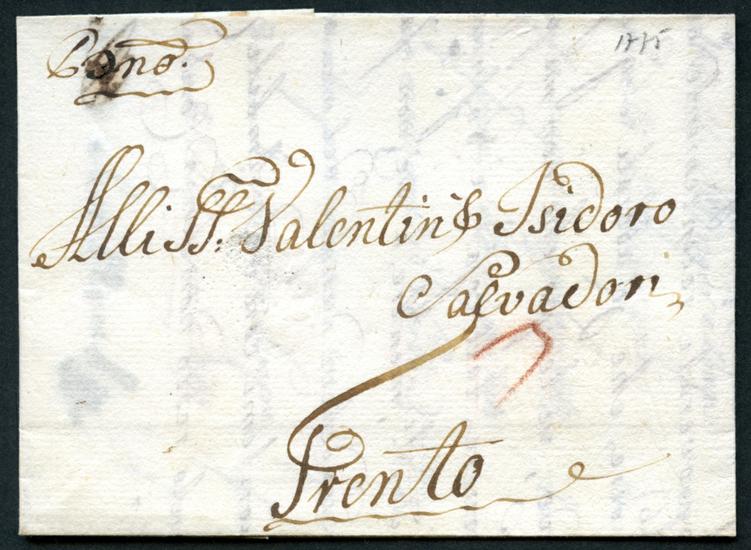 1775
Alli SS: Valentin & Isidoro
Salvadori
7
Trento